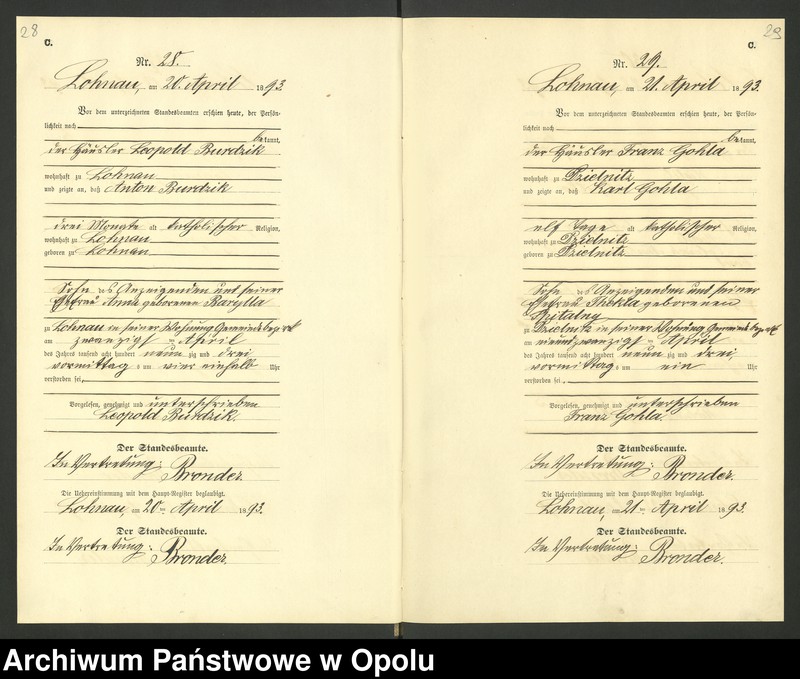 28
C.
Nr. 28.
Lohnau, am 20. April 1893.
Vor dem unterzeichneten Standesbeamten erschien heute, der Persön-
lichkeit nach
bekannt,
der Häusler Leopold Burdzik
wohnhaft zu Lohnau
und zeigte an, daß Anton Burdzik
drei Monate alt katholischer Religion,
wohnhaft zu Lohnau
geboren zu Lohnau
Sohn des Anzeigenden und seiner
Ehefrau Anna geborenen Barylla
zu Lohnau in seiner Wohnung Gemeindebezirk
am zwanzigst en April
des Jahres tausend acht hundert neun zig und drei
vormittags um vier einhalb Uhr
verstorben sei.
Vorgelesen, genehmigt und unterschrieben
Leopold Burdzik.
Der Standesbeamte.
In Vertretung: Bronder.
Die Uebereinstimmung mit dem Haupt-Register beglaubigt.
Lohnau, am 20 ten April 1893.
Der Standesbeamte.
In Vertretung: Bronder.
29
C.
Nr. 29.
Lohnau, am 21. April 1893.
Vor dem unterzeichneten Standesbeamten erschien heute, der Persön-
lichkeit nach
bekannt,
der Häusler Franz Gohla
wohnhaft zu Dzielnitz
und zeigte an, daß Karl Gohla
elf Tage alt katholischer Religion,
wohnhaft zu Dzielnitz
geboren zu Dzielnitz
Sohn des Anzeigenden und seiner
Ehefrau Thekla geborenen
zu Dzielnitz in seiner Wohnung Gemeindebezirk
am neunundzwanzigst en April
des Jahres tausend acht hundert neun zig und drei,
vormittags um ein Uhr
verstorben sei.
Vorgelesen, genehmigt und unterschrieben
Franz Gohla.
Der Standesbeamte.
In Vertretung: Bronder.
Die Uebereinstimmung mit dem Haupt-Register beglaubigt.
Lohnau, am 21 ten April 1893.
Der Standesbeamte.
In Vertretung: Bronder.
Archiwum Państwowe w Opolu